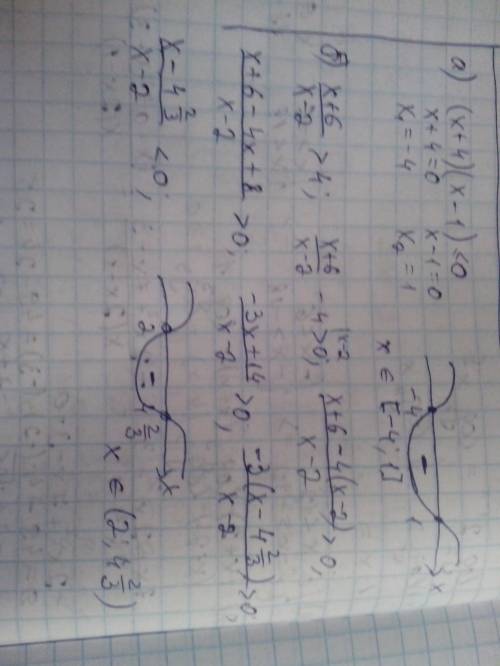 а) (x+4)(x-1)<0
x+4=0 x-1=0
x₁=-4 x₂=1
-4 - 1 x
x ∈ [-4; 1]
б) x+6/x-2 >4; x+6/x-2 - 4>0; x+6-4(x-2)/x-2 >0;
x+6-4x+8/x-2 >0; -3x+14/x-2 >0; -3(x-4 2/3)/x-2 >0;
x-4 2/3/x-2 <0; 2 - 4 2/3 x
x ∈ (2; 4 2/3)